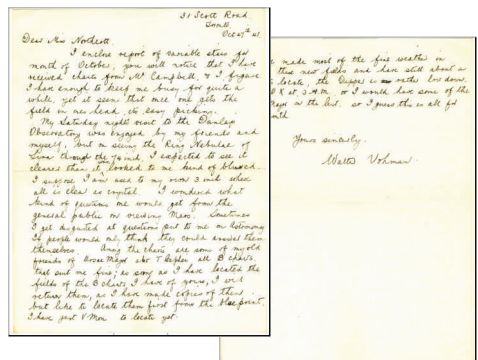 31 Scott Road
Oct 27th 41.
Dear Miss Northcott.
I enclose report of variable stars for
month of October, you will notice that I have
received charts from Mr Campbell, & I figure
I have enough to keep me busy for quite a
while, yet it seems that once one gets the
field in one's head, its easy picking.
My Saturday night visit to the Dunlap
Observatory was enjoyed by my friends and
myself, but on seeing the Ring Nebulae of
Lyra through the 74 inch, I expected to see it
clearer than it looked to me kind of blurred.
I suppose I am used to my own 3 inch where
all is clear as crystal. I wondered what
kind of questions one would get from the
general public on viewing Mars. Sometimes
I get disgusted at questions put to me on Astronomy
If people would only think they could answer them
themselves. Among the charts are some of my old
friends of Ursae Majoris T Cephei all B charts.
that suit me fine; as soon as I have located the
fields of the B charts I have of yours, I will
return them, as I have made copies of them
but like to locate them first from the blueprint,
I have just V Mon to locate yet.
made most of the fine weather on
these new fields and have still about
locate, the Dipper is rather low down.
O K at 3 A.M. or I would have some of the
on the list. so I guess this is all for
month
Yours sincerely.
Walter Vohman.